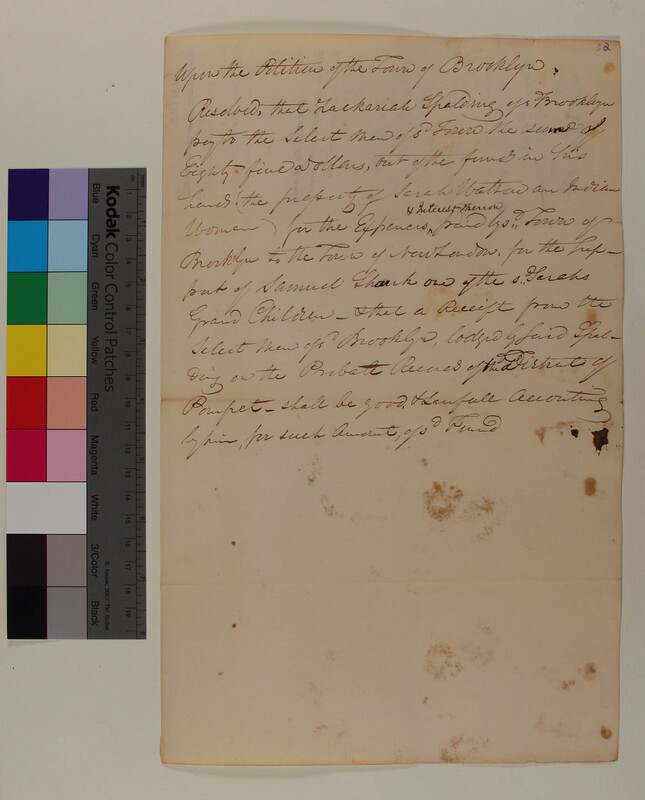 52
Upon the Petition of the Town of Brooklyn.
Resolved, that Zachariah Spalding of sd Brooklyn
pay to the Select Men of sd Town the sum of
Eighty-five Dollars, out of the fund in his
hand (the property of Sarah Watson an Indian
& Interest thereon
Woman) for the Expences, paid by sd Town of
Brooklyn to the Town of New London, for the Sup-
port of Samuel Shunk one of the sd Sarahs
Grand Children — & that a Receipt from the
Select Men of sd Brooklyn, lodged by said Spal-
ding on the Probate Records of the District of
Pomfret — shall be good & Lawfull Accounting
by him, for such Amount, of sd Fund
Kodak
Color Control Patches
Blue
Cyan
Green
Yellow
Red
Magenta
White
3/Color
Black